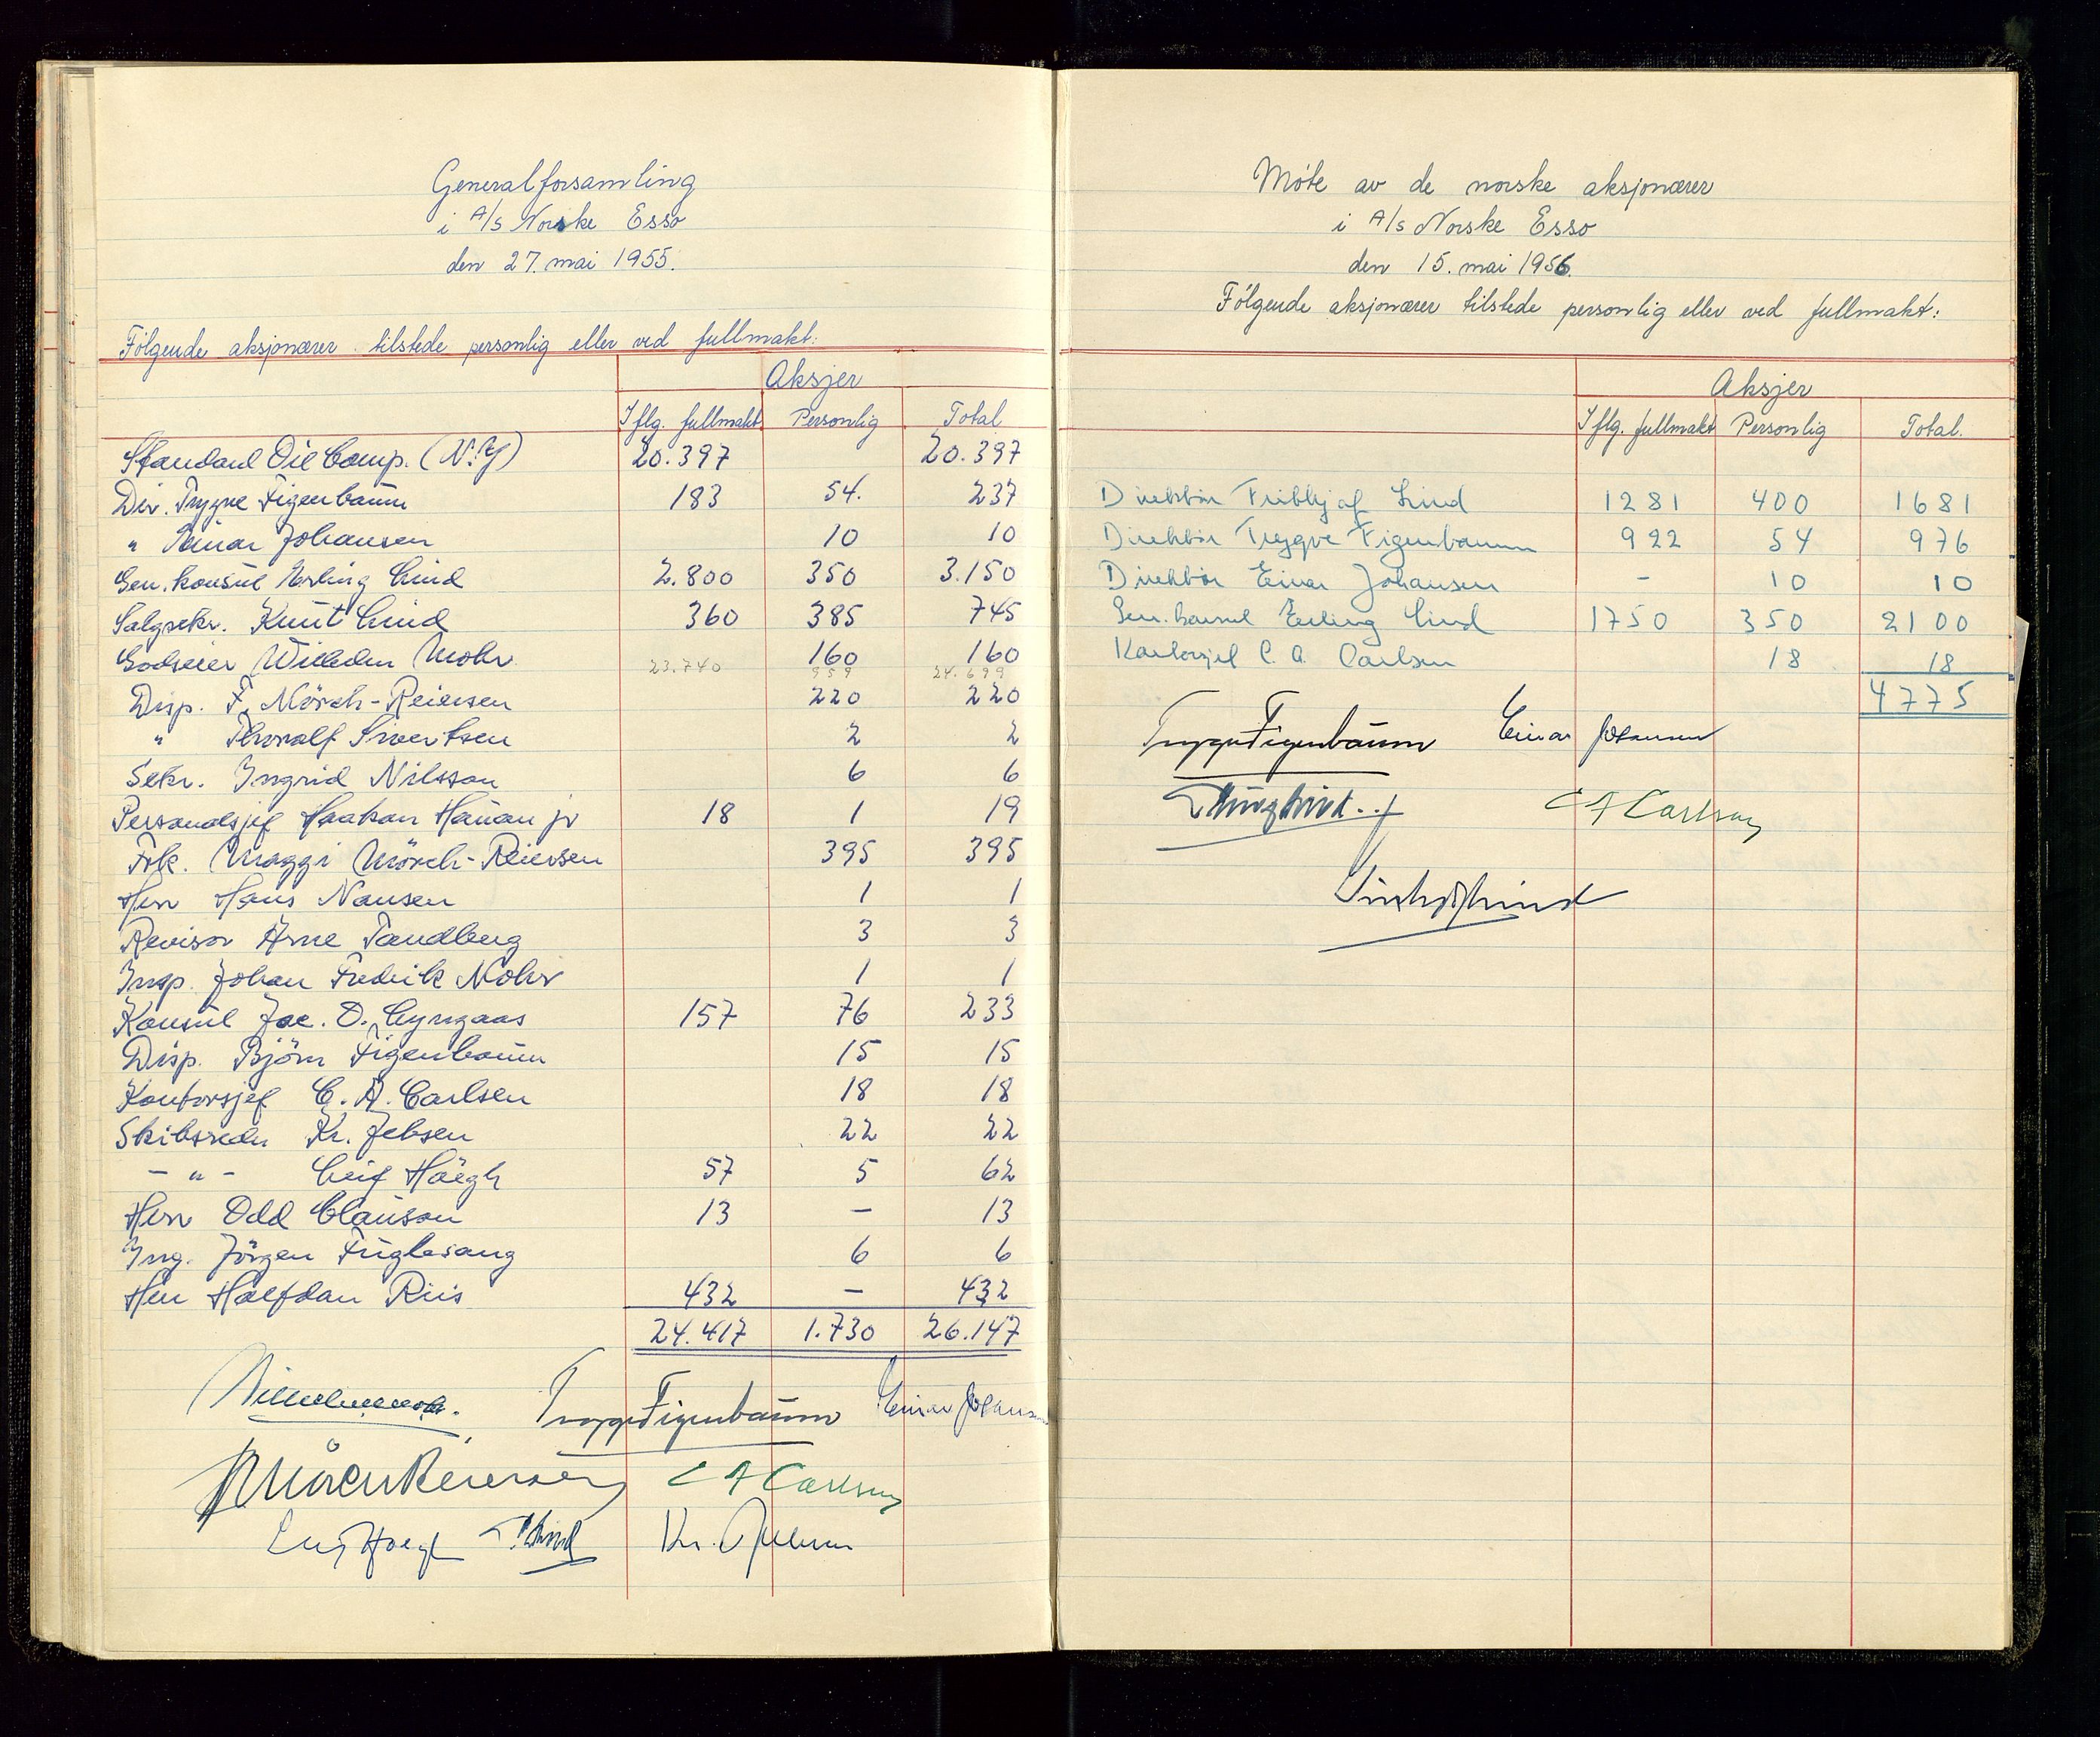 Generalforsamling
i A/S Norske Esso
den 27. mai 1955.
Følgende aksjonærer tilstede personlig eller ved fullmakt:
Aksjer
Iflg. fullmakt Personlig Total
Standard Oil Comp. (N.Y) 20.397 20.397
Dir. Trygve Figenbaum 183 54. 237
" Einar Johansen 10 10
Gen. konsul Erling Lind 2.800 350 3.150
Salgssekr. Knut Lind 360 385 745
Godseier Wilhelm Mohr 160 160
23.740 959 24.699
Disp. F. Mörch-Reiersen 220 220
" Thoralf Sivertsen 2 2
Sekr. Ingrid Nilsson 6 6
Personalsjef Haakon Hauan jr 18 1 19
Frk. Maggi Mörch-Reiersen 395 395
Herr Hans Nansen 1 1
Revisor Arne Tandberg 3 3
Insp. Johan Fredrik Mohr 1 1
Konsul Jac. D. Lyngaas 157 76 233
Disp. Björn Figenbaum 15 15
Kontorsjef C. A. Carlsen 18 18
Skibsreder Kr. Jebsen 22 22
- " - Leif Höegh 57 5 62
Herr Odd Clauson 13 - 13
Ing. Jörgen Fuglesang 6 6
Herr Halfdan Riis 432 - 432
24.417 1.730 26.147
Wilhelm Mohr. Trygve Figenbaum Einar Johansen
F Mörch Reiersen C A Carlsen
Leif Höegh E Lind Kr. Jebsen
Møte av de norske aksjonærer
i A/S Norske Esso
den 15. mai 1956.
Følgende aksjonærer tilstede personlig eller ved fullmakt:
Aksjer
Iflg. fullmakt Personlig Total.
Direktør Fridtjof Lind 1281 400 1681
Direktør Trygve Figenbaum 922 54 976
Direktør Einar Johansen - 10 10
Gen. konsul Erling Lind 1750 350 2100
Kontorsjef C. A. Carlsen 18 18
4775
Trygve Figenbaum Einar Johansen
Erling Lind C A Carlsen
Fridtjof Lind